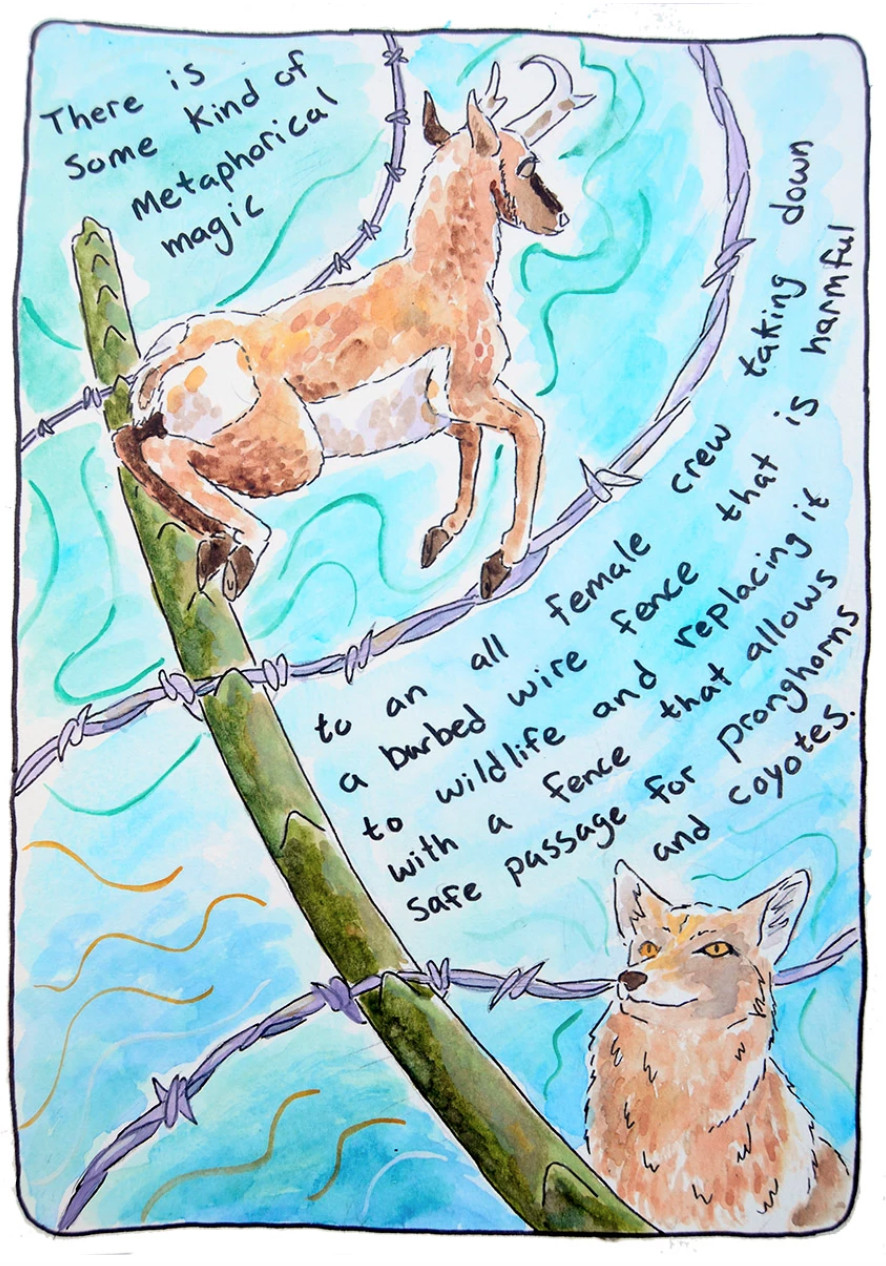 There is
some kind of
metaphorical
magic
to an all female crew taking down
a barbed wire fence that is harmful
to wildlife and replacing it
with a fence that allows
safe passage for pronghorns
and coyotes.